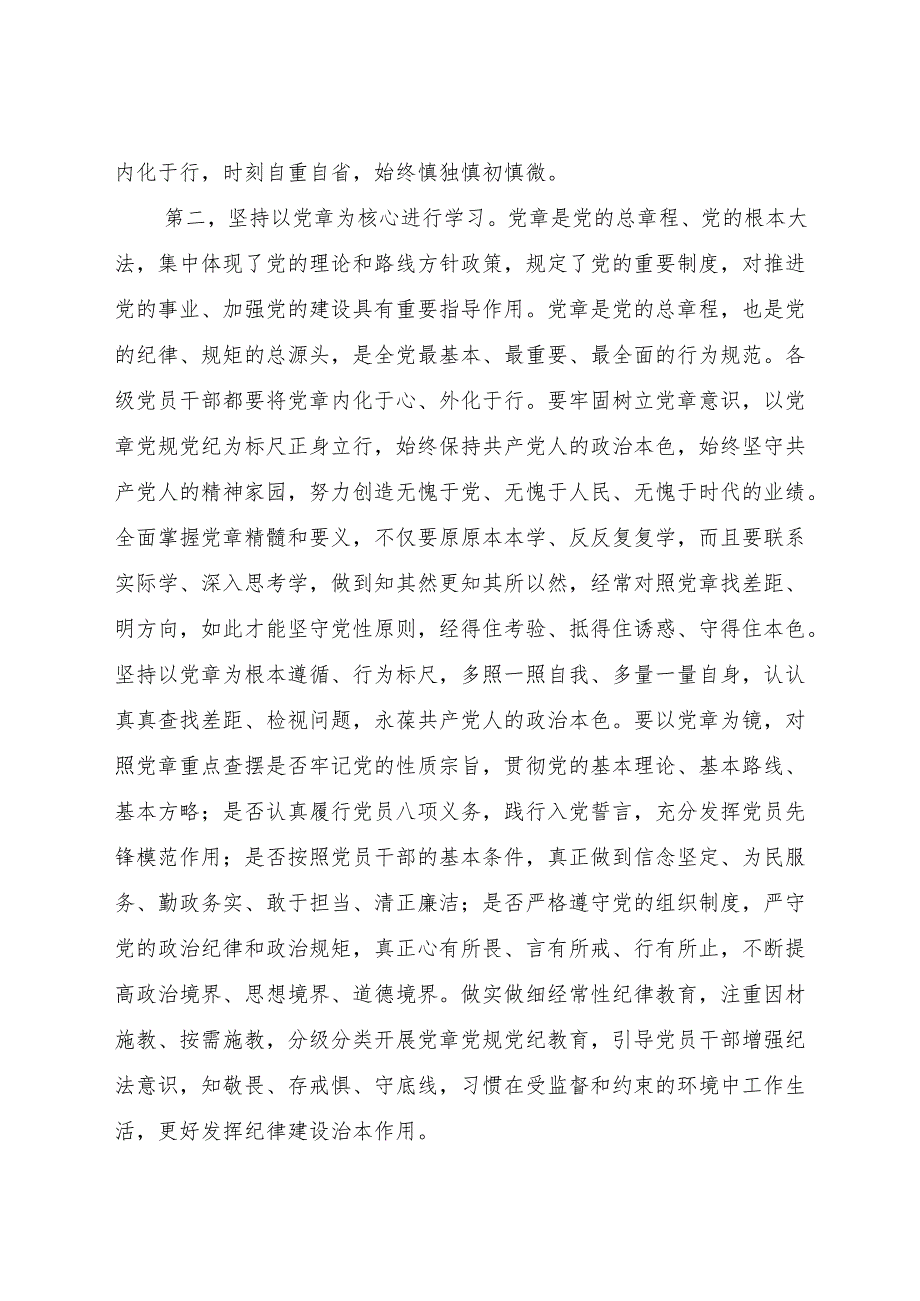 内化于行，时刻自重自省，始终慎独慎初慎微。
第二，坚持以党章为核心进行学习。党章是党的总章程、党的根本大
法，集中体现了党的理论和路线方针政策，规定了党的重要制度，对推进
党的事业、加强党的建设具有重要指导作用。党章是党的总章程，也是党
的纪律、规矩的总源头，是全党最基本、最重要、最全面的行为规范。各
级党员干部都要将党章内化于心、外化于行。要牢固树立党章意识，以党
章党规党纪为标尺正身立行，始终保持共产党人的政治本色，始终坚守共
产党人的精神家园，努力创造无愧于党、无愧于人民、无愧于时代的业绩。
全面掌握党章精髓和要义，不仅要原原本本学、反反复复学，而且要联系
实际学、深入思考学，做到知其然更知其所以然，经常对照党章找差距、
明方向，如此才能坚守党性原则，经得住考验、抵得住诱惑、守得住本色。
坚持以党章为根本遵循、行为标尺，多照一照自我、多量一量自身，认认
真真查找差距、检视问题，永葆共产党人的政治本色。要以党章为镜，对
照党章重点查摆是否牢记党的性质宗旨，贯彻党的基本理论、基本路线、
基本方略；是否认真履行党员八项义务，践行入党誓言，充分发挥党员先
锋模范作用；是否按照党员干部的基本条件，真正做到信念坚定、为民服
务、勤政务实、敢于担当、清正廉洁；是否严格遵守党的组织制度，严守
党的政治纪律和政治规矩，真正心有所畏、言有所戒、行有所止，不断提
高政治境界、思想境界、道德境界。做实做细经常性纪律教育，注重因材
施教、按需施教，分级分类开展党章党规党纪教育，引导党员干部增强纪
法意识，知敬畏、存戒惧、守底线，习惯在受监督和约束的环境中工作生
活，更好发挥纪律建设治本作用。